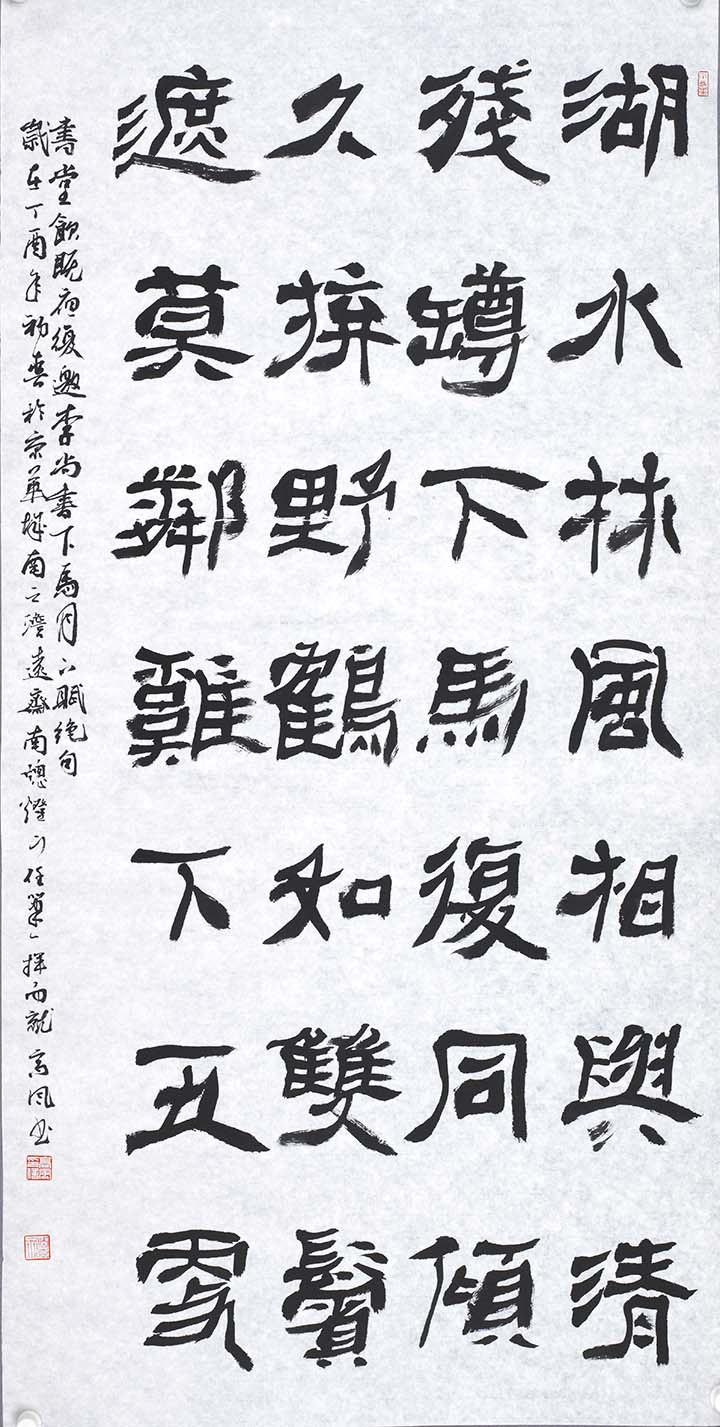 湖水林風相與清
殘罇下馬復同傾
久拚野鶴如雙鬢
遮莫鄰雞下五更
書堂飲既夜復邀李尚書下馬月下賦絕句
歲在丁酉年初春於京華城南之濟遠齋南窗燈下任筆一揮而就 高風書